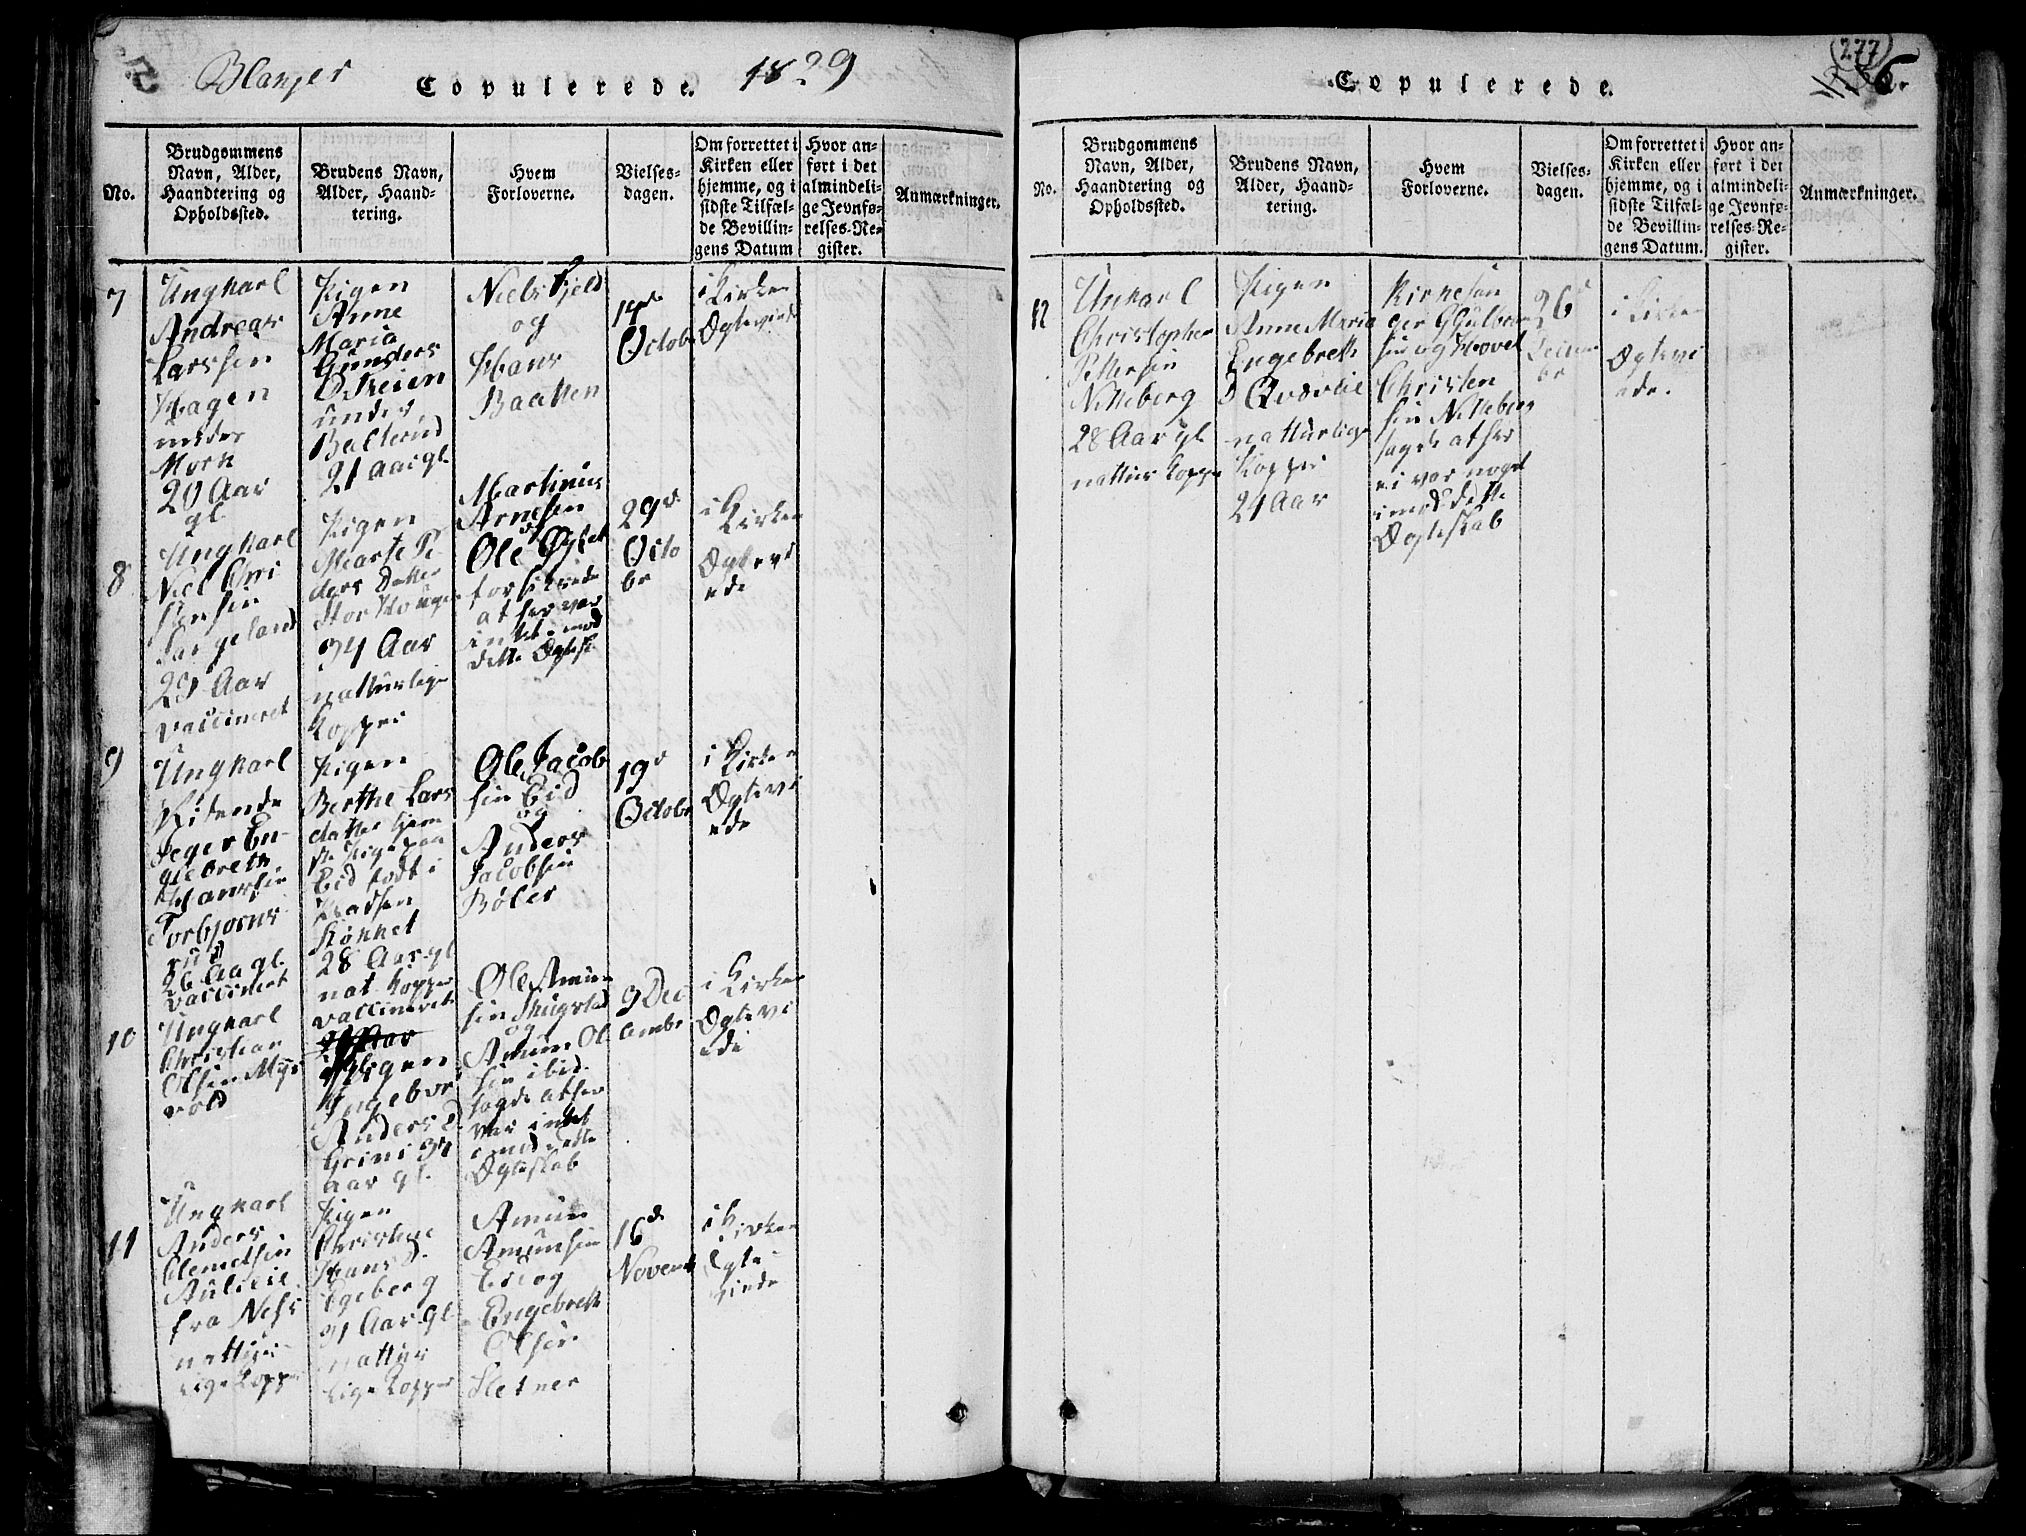 Copulerede. 1829
No.
Brudgommens
Navn, Alder,
Haandtering og
Opholdssted.
Brudens Navn,
Alder, Haand-
tering.
Hvem
Forloverne.
Vielses-
dagen.
Om forrettet i
Kirken eller
hjemme, og i
sidste Tilfæl-
de Bevillin-
gens Datum
Hvor an-
ført i det
almindeli-
ge Jevnfø-
relses-Re-
gister.
Anmærkninger.
7
Ungkarl
Andreas
Larssen
Hagen
under
Mork
20 Aar
gl.
Pigen
Anne
Maria
Gunders
D Keien
under
Balterud
21 Aar gl.
Niels Fjeld
og
Hans
Baatten
14de
Octobr
i Kirken
Ogteviede
8
Ungkarl
Niel Chri
stensen
29 Aar
vaccineret
Pigen
Marte Pe
ders Datter
34 Aar
natturlige
Kopper
Martinus
Arnesen
Ole
forsikrede
at her var
intet imod
dette Ogtesk
29de
Octo
br
i Kirken
Ogtevi
ede
9
Ungkarl
Ridende
Jeger En-
gebreth
Hansen
Torbjorns
rud
26 Aa gl.
vaccineret
Pigen
Berthe Lars
datter tjene
Pige paa
Eid fodt i
28 Aar gl.
nat. Kopper
vaccineret
Ole Jacob
sen Eid
og
Anders
Jacobsen
Böler
19de
Octobr
i Kirken
Ogtevi
ede
10
Ungkarl
Christian
Olsen Myr
vold
Pigen
Ingebor
Anders D
Grini 34
Aar gl.
Ole Amun
sen
og
Amun Ol
sen ibid.
sagde at her
var intet
imod dette
Ogteskab
9 Dec
embr
i Kirken
Ogtevi
ede
11
Ungkarl
Anders
Clemetsen
Aulilie
fra Næss
nattur-
lige Kopper
Pigen
Christine
Hans D.
Egeberg
31 Aar gl.
nattur
lige Kopper
Amun
Amunsen
Eid og
Engebreth
Olsen
Sletner
16de
Novembr
i Kirken
Ogte
viede
(277)
Copulerede.
6.
No.
Brudgommens
Navn, Alder,
Haandtering og
Opholdssted.
Brudens Navn,
Alder, Haand-
tering.
Hvem
Forloverne.
Vielses-
dagen.
Om forrettet i
Kirken eller
hjemme, og i
sidste Tilfæl-
de Bevillin-
gens Datum.
Hvor an-
ført i det
almindeli-
ge Jevnfø-
relses-Re-
gister.
Anmærkninger.
12
Unkarl
Christopher
Pettersen
Nitteberg
28 Aar gl.
nattur Koppe
Pigen
Anne Maria
Engebreth
D
natturlige
Kopper
24 Aar
Kirkesan
ger
sen og Hovel
Christen
sen Nitteberg
sagde at her
ei var noget
imod dette
Ogteskab
26de
i Kirken
Ogtevi
ede.